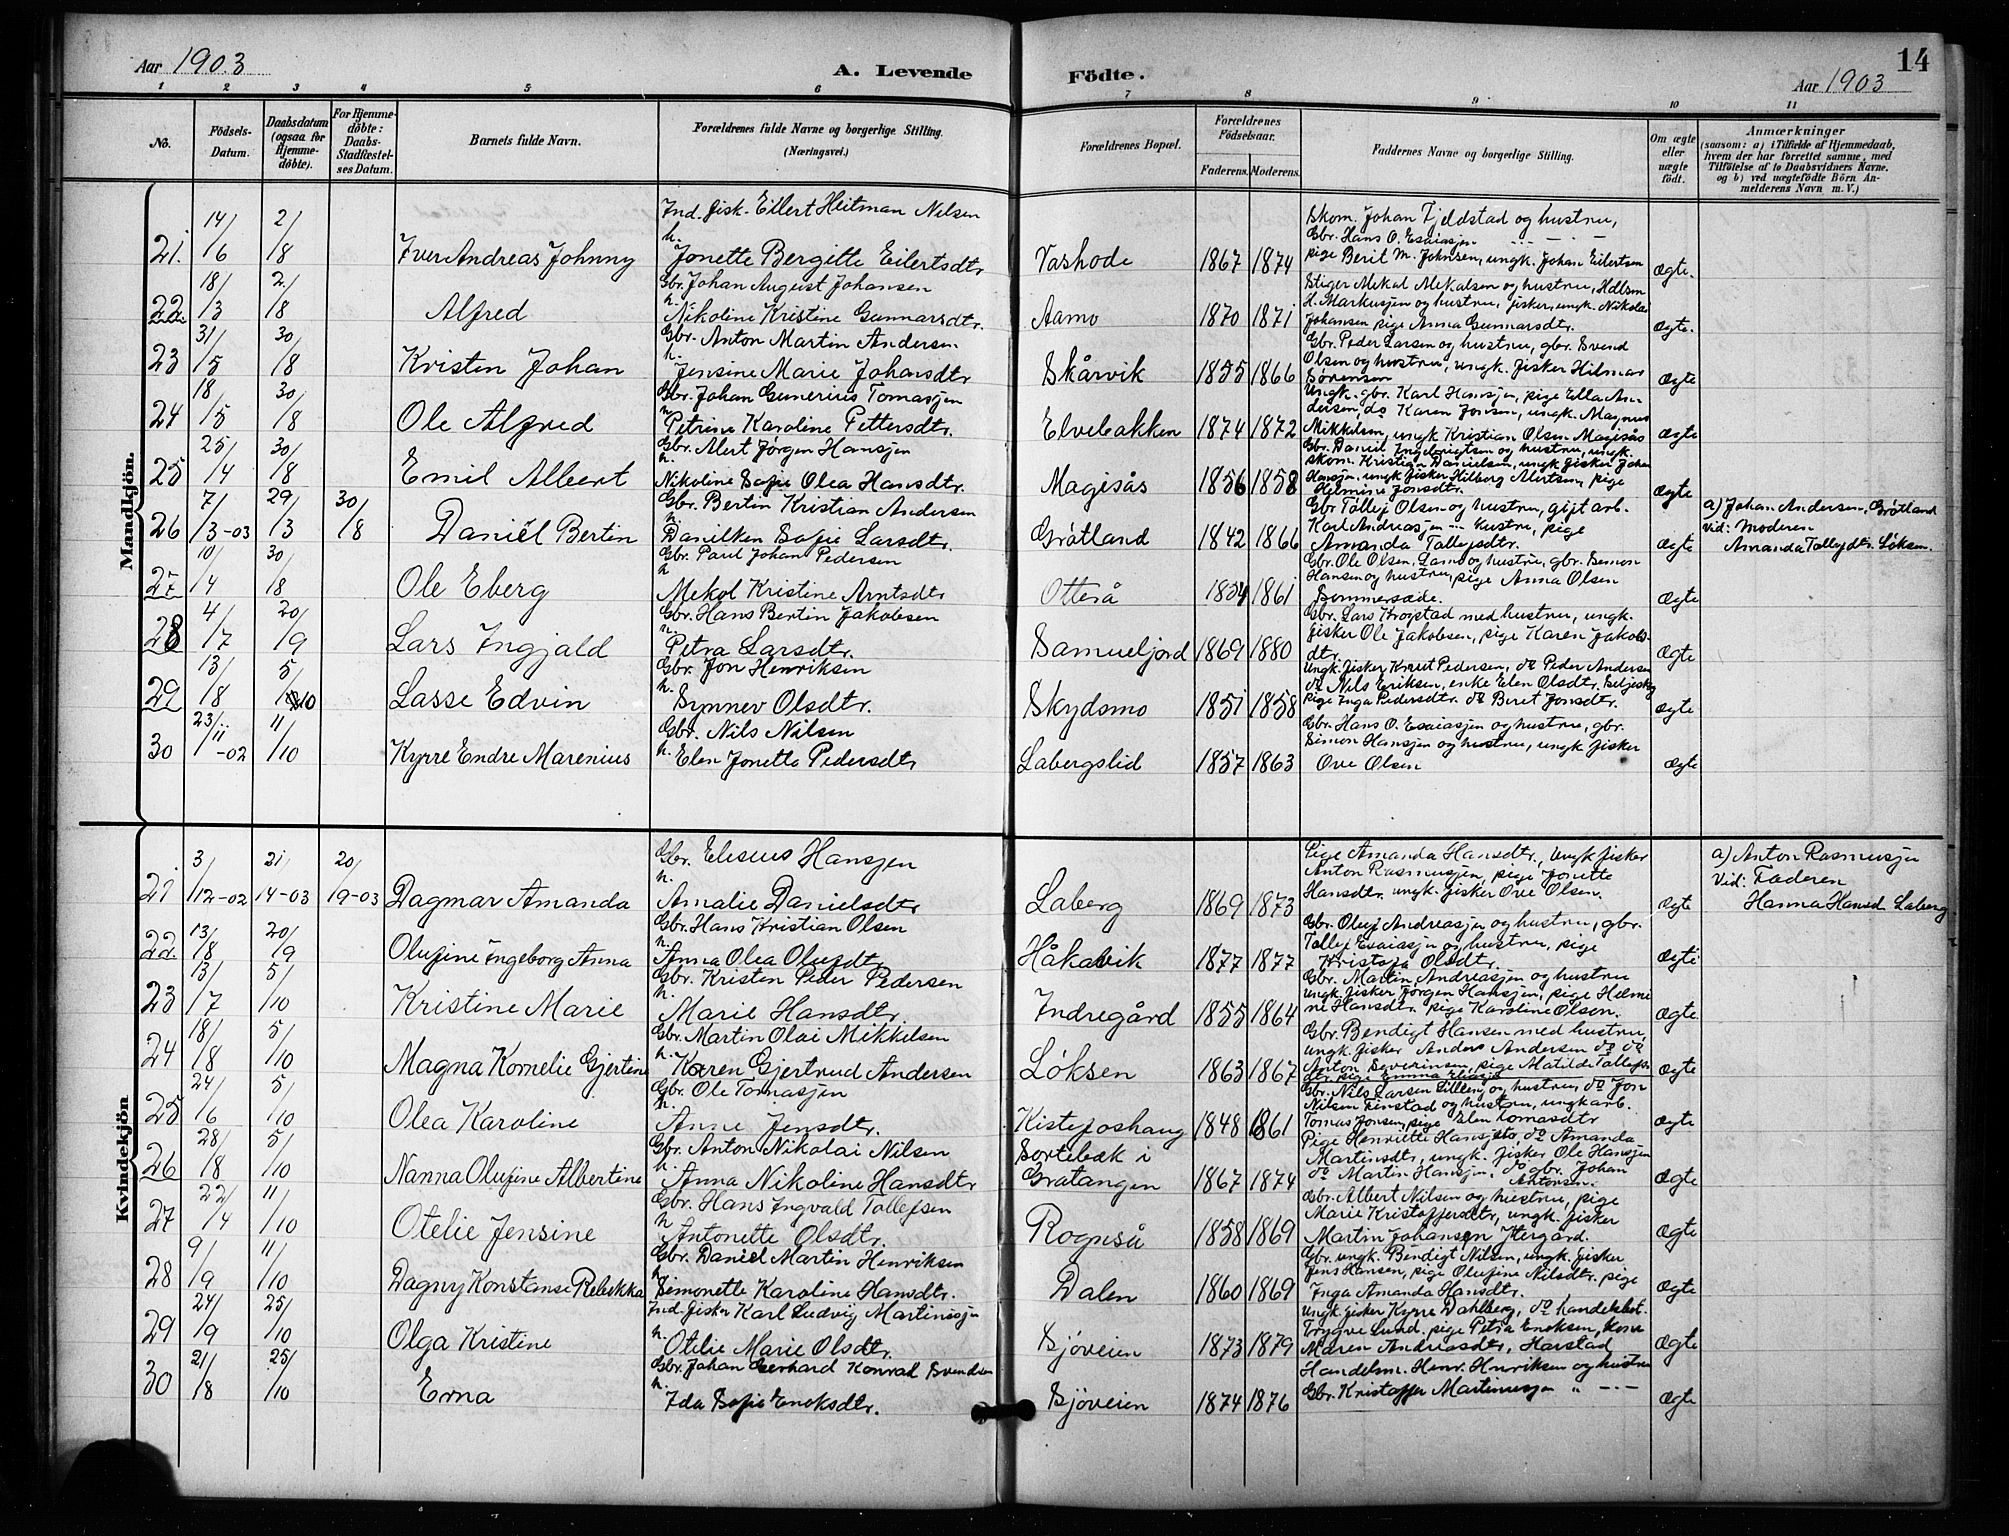 Aar 1903
A. Levende
Födte.
Aar 1903
14
1 2 3 4 5 6 7 8 9 10 11
No.
Födsels-Datum.
Daabsdatum (ogsaa for Hjemmedöbte).
For Hjemmedöbte: Daabs-Stadfæstelses Datum.
Barnets fulde Navn.
Forældrenes fulde Navne og borgerlige Stilling.
(Næringsvei.)
Forældrenes Bopæl.
Forældrenes Födselsaar.
Faderens. Moderens.
Faddernes Navne og borgerlige Stilling.
Om ægte eller uægte födt.
Anmærkninger
(saasom: a) i Tilfælde af Hjemmedaab, hvem der har forrettet samme, med Tilföielse af to Daabsvidners Navne, og b) ved uægtefödte Börn Anmelderens Navn m. V.)
Mandkjön.
21. 14/6 2/8 Iver Andreas Johnny
Ind. fisk. Eilert Heitman Nilsen
h. Jonette Bergitte Eilertsdtr.
Vashode 1867 1874
Skom. Johan Fjeldstad og hustru,
Gbr. Hans O. Esaiasen
pige Berit M. Johnsen, ungk. Johan Eilertsen
Ægte.
22 18/3 2/8 Alfred
Gbr. Johan August Johansen
h. Nikoline Kristine Gunnarsdtr.
Aamo 1870 1871
Stiger Mekal Mekalsen og hustru, Hdlsm
H. Markussen og hustru, fisker, ungk. Nikolai
Johansen pige Anna Gunnarsdtr.
Ægte.
23 31/5 30/8 Kristen Johan
Gbr. Anton Martin Andersen.
h. Jensine Marie Johansdtr.
Skårvik 1855 1866
Gbr. Peder Larsen og hustru, gbr. Svend
Olsen og hustru, ungk. fisker Hilmar
Sørensen
Ægte
24 18/5 30/8 Ole Alfred
Gbr. Johan Gunerius Tomassen
h Petrine Karoline Pettersdtr.
Elvebakken 1874 1872
Ungk. gbr. Karl Hanssen, pige Ella Andersen, do Karen Jonsen, ungk. Magnus
Mikkelsen, ungk Kristian Olsen Magisås
Ægte
25 25/4 30/8 Emil Albert
Gbr. Alert Jørgen Hanssen
h. Nikoline Sofie Olea Hansdtr.
Magisås 1856 1858
Gbr. Daniel Ingebrigtsen og hustru, ungk.
skom. Kristian Danielsen, ungk fisker Johan
Hanssen, ungk fisker Hilberg Alertsen, pige
Helmine Jonsdtr.
Ægte
26 7/3-03 29/3 30/8 Daniel Bertin
Gbr. Bertin Kristian Andersen
h. Danilken Sofie Larsdtr.
Gråtland 1842 1866
Gbr Tollef Olsen og hustru, gift arb.
Karl Andreassen — hustru, pige
Amanda Tollefsdtr.
Ægte
a) Johan Andersen, Gråtland
Vid: Moderen
Amanda Tollefdtr. Løksen.
27 10/4 30/8 Ole Eberg
Gbr. Paul Johan Pedersen
h Mekol Kristine Arntsdtr
Otterå 1854 1861
Gbr. Ole Olsen, Lamo og hustru, gbr. Simon
Hansen og hustru, pige Anna Olsen
Sommersæde.
Ægte
28 4/7 20/9 Lars Ingjald
Gbr. Hans Bertin Jakobsen
h. Petra Larsdtr.
Samueljord 1869 1880
Gbr. Lars Krogstad med hustru, ungk.
fisker Ole Jakobsen, pige Karen Jakobsdtr.
Ægte
29 13/8 5/10 Lasse Edvin
Gbr. Jon Henriksen
h. Synnev Olsdtr.
Skydsmo 1851 1858
Ungk. fisker Knut Pedersen, do Peder Andersen
do Nils Eriksen, enke Elen Olsdtr.
pige Inga Pedersdtr. do Beret Jonsdtr.
Ægte
30 23/11-02 11/10 Kyrre Endre Marenius
Gbr. Nils Nilsen
h. Elen Jonette Pedersdtr
Labergslid 1857 1863
Gbr. Hans O. Esaiassen og hustru, gbr.
Simon Hanssen og hustru, ungk fisker
Ove Olsen
Ægte
Kvindekjön
21 3/12-02 21/14-03 20/9-03 Dagmar Amanda
Gbr. Eliseus Hanssen
h. Amalie Danielsdtr
Laberg 1869 1873
Pige Amanda Hansdtr., ungk fisker
Anton Rasmussen, pige Jonette
Hansdtr. ungk. fisker Ove Olsen.
Ægte
a) Anton Rasmussen
Vid: Faderen
Hanna Hansd. Laberg
22 13/8 20/9 Olufine Ingeborg Anna
Gbr. Hans Kristian Olsen
h. Anna Olea Olufdtr
Håkavik 1877 1877
Gbr. Oluf Andreassen og hustru, gbr.
Tollef Esaiassen og hustru, pige
Kristofa Olsdtr.
Ægte
23 13/7 5/10 Kristine Marie
Gbr. Kristen Peder Pedersen
h. Marie Hansdtr.
Indregård 1855 1864
Gbr. Martin Andreassen og hustru
ungk. fisker Jørgen Hanssen, pige Helmine Hansdtr. pige Karoline Olsen.
Ægte
24 18/8 5/10 Magna Kornelie Gjertine
Gbr. Martin Olai Mikkelsen
h. Karen Gjertrud Andersen
Løksen 1863 1867
Gbr. Bendigt Hansen med hustru,
ungk. fisker Anders Andersen do do
Anton Severinsen, pige Matilde Tollefsdtr.
Ægte
25 24/6 5/10 Olea Karoline
Gbr. Ole Tomassen
h. Anne Jensdtr.
Kistefoshaug 1848 1861
Gbr. Nils Larsen Lilleng og hustru, do Jon
Nilsen Finstad og hustru, ungk arb.
Tomas Jonsen, pige Elen Tomasdtr
Ægte
26 28/8 5/10 Nanna Olufine Albertine
Gbr. Anton Nikolai Nilsen
h. Anna Nikoline Hansdtr
Sortebæk i
Gratangen 1867 1874
Pige Henriette Hansdtr., do Amanda
Martinsdtr, ungk. fisker Ole Hanssen
do Martin Hanssen, do gbr. Johan
Antonsen.
Ægte
27 22/4 11/10 Otelie Jensine
Gbr. Hans Ingvald Tollefsen
h Antonette Olsdtr.
Rognså 1858 1869
Gbr. Albert Nilsen og hustru, pige
Marie Kristoffersdtr, ungk. fisker
Martin Johansen Ytergård.
Ægte
28 9/9 11/10 Dagny Konstanse Rebekka
Gbr. Daniel Martin Henriksen
h Simonette Karoline Hansdtr.
Dalen 1860 1869
Gbr. ungk. Bendigt Nilsen, ungk. fisker
Jens Hansen, pige Olufine Nilsdtr. pige
Inga Amanda Hansdtr.
Ægte
29 24/9 25/10 Olga Kristine
Ind. fisker Karl Ludvig Martinussen
h. Otelie Marie Olsdtr.
Sjøveien 1873 1879
Ungk. fisker Kyrre Dahlberg, do handelsbet.
Trygve Lund, pige Petra Enoksen, kone
Maren Andreasdtr, Harstad
Ægte
30 21/8 25/10 Erna
Gbr. Johan Gerhard Konrad Svendsen
h. Ida Sofie Enoksdtr.
Sjøveien 1874 1876
Handelsm. Henr. Henriksen og hustru
Gbr. Kristoffer Martinussen " — . —
Ægte